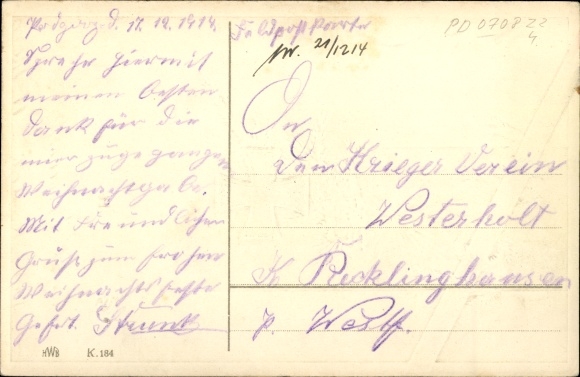 17. 12. 1914.
Spreche hiermit
meinen besten
Dank für die
mir zugegangene
Weihnachtsgabe.
Mit freundlichem
Gruß zum frohen
Weihnachtsfeste
Gefrt. Strunk
HWB K. 184
Feldpostkarte
PD 0708 22
4.
Nr. 21/12 14
An
Den Krieger Verein
Westerholt
K. Recklinghausen
p. Westf.